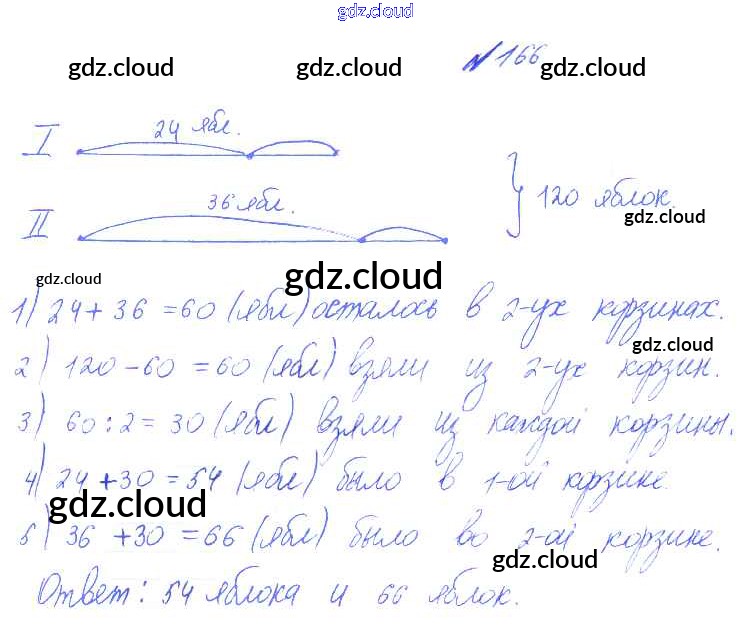 gdz.cloud
№166
gdz.cloud gdz.cloud gdz.cloud
I 24 ябл.
II 36 ябл. } 120 яблок.
gdz.cloud
gdz.cloud
gdz.cloud
1) 24 + 36 = 60 (ябл) осталось в 2-ух корзинах.
gdz.cloud
2) 120 - 60 = 60 (ябл) взяли из 2-ух корзин.
3) 60 : 2 = 30 (ябл) взяли из каждой корзины.
4) 24 + 30 = 54 (ябл) было в 1-ой корзине.
gdz.cloud
5) 36 + 30 = 66 (ябл) было во 2-ой корзине.
gdz.cloud
Ответ: 54 яблока и 66 яблок.